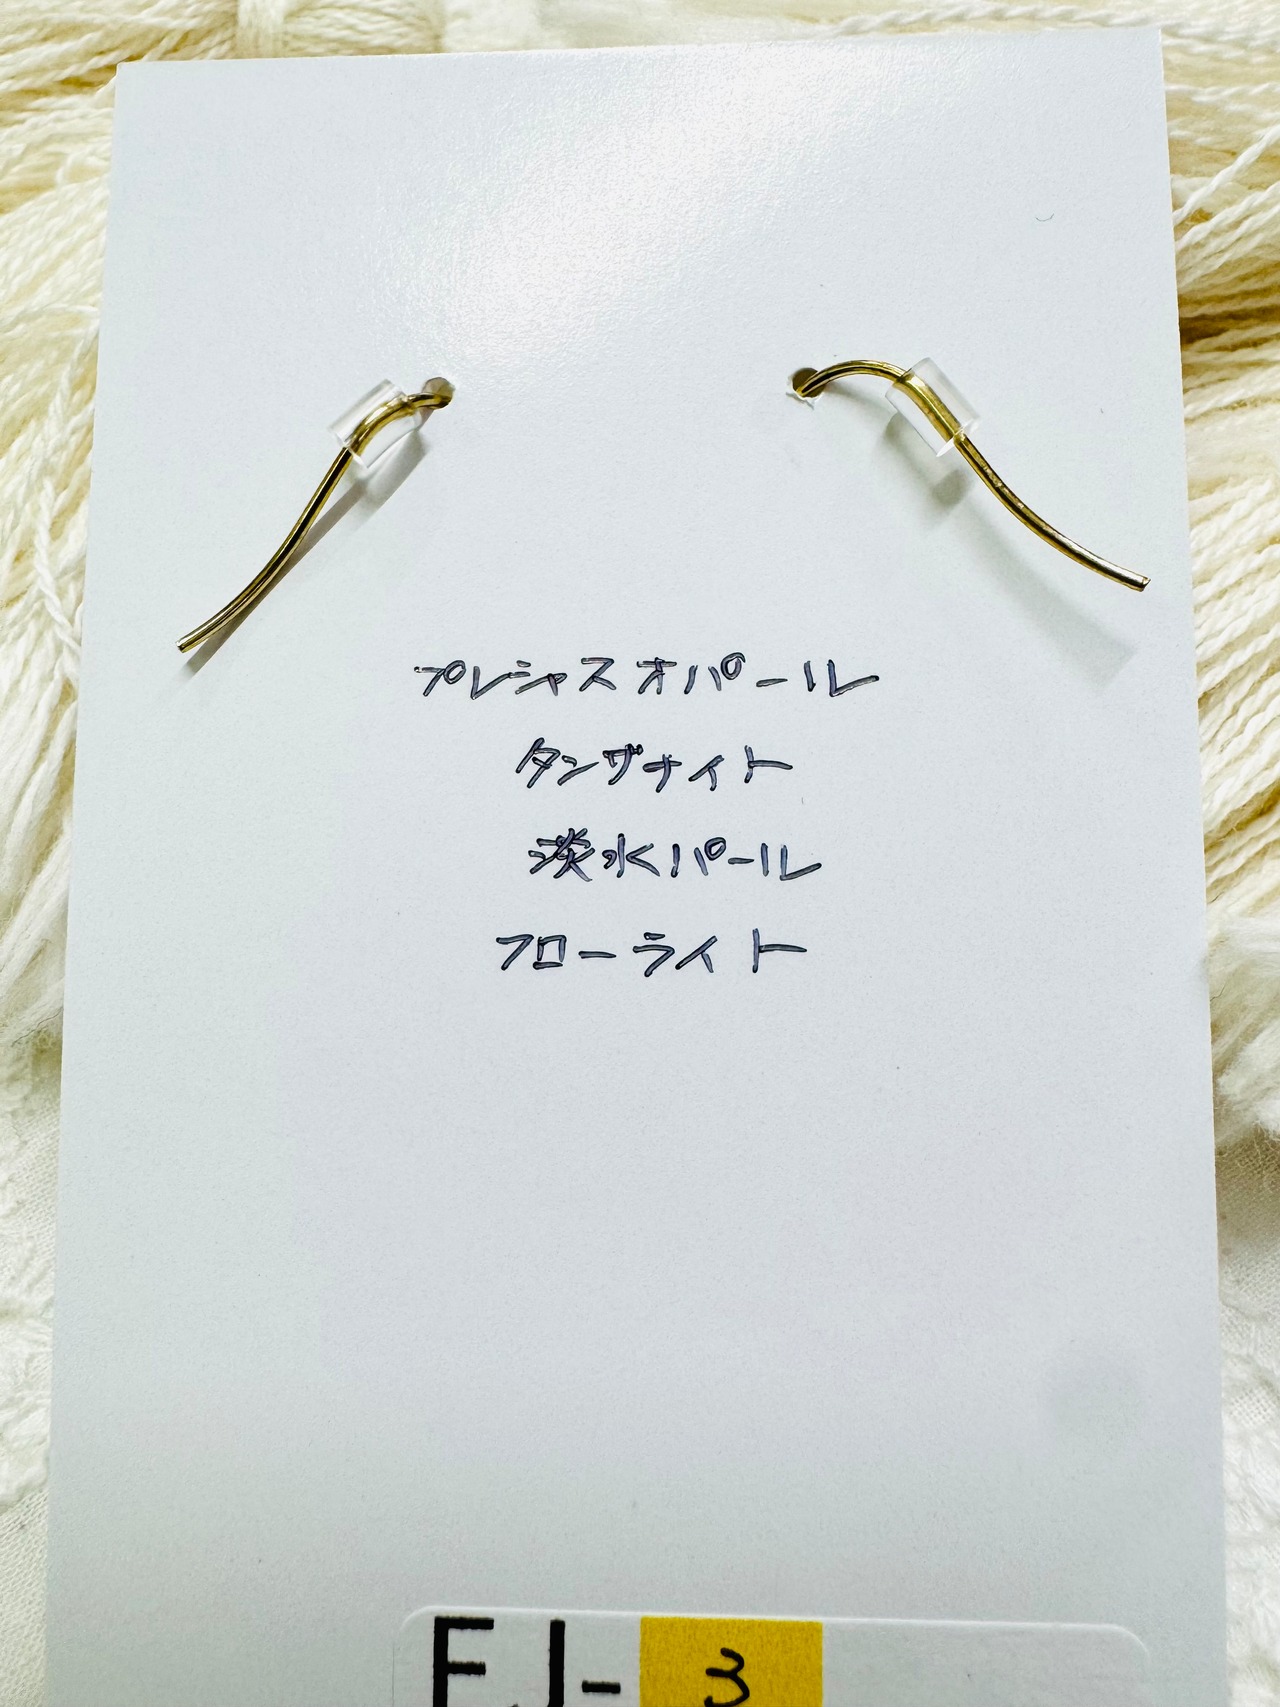 プレシャスオパール
タンザナイト
淡水パール
フローライト